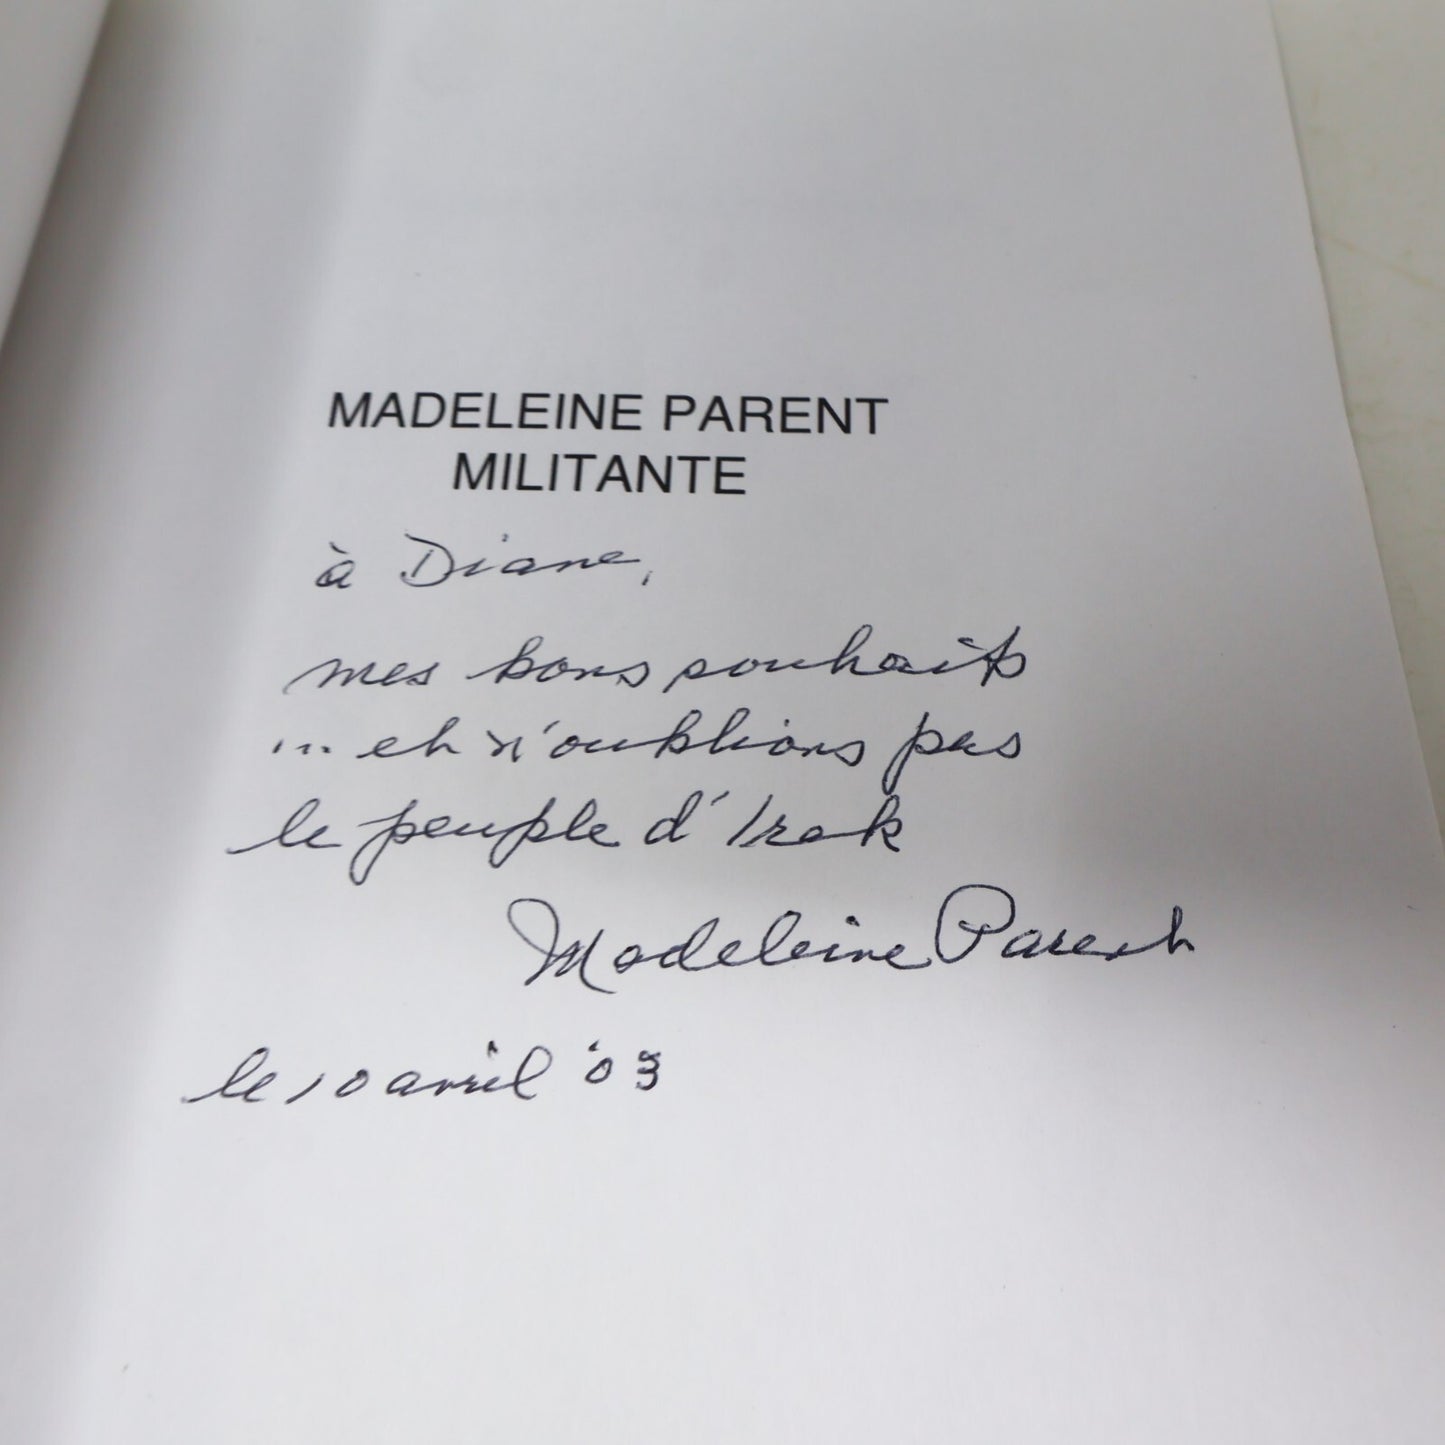 MADELEINE PARENT
MILITANTE
à Diane,
mes bons souhaits
... et n'oublions pas
le peuple d'Irak
Madeleine Parent
le 10 avril '03